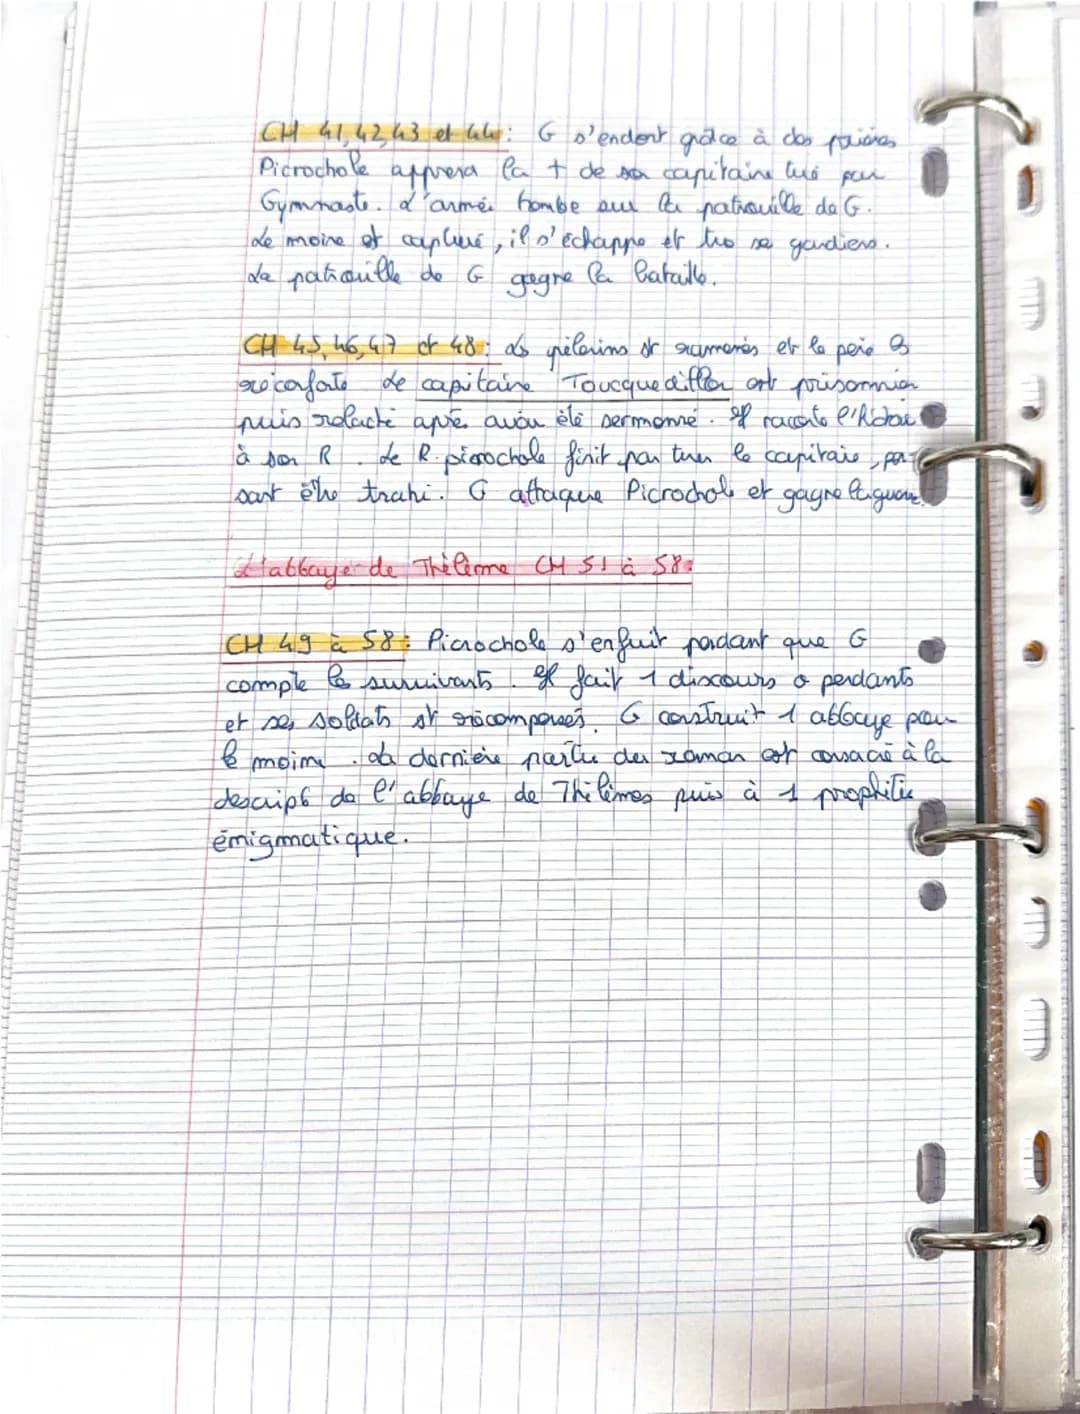 CH 41, 42, 43 et 44: G s'endort grâce à des prières
Picrochole apprend la + de son capitaine tué par
Gymnaste. L'armée tombe sur la patrouille de G.
Le moine est capturé, il s'échappe et tue se gardiens.
La patrouille de G gagne la bataille.
CH 45, 46, 47 et 48: Les pèlerins st ramenés et le père les
réconforte Le capitaine Toucquedillon est prisonnier
puis relaché après avoir été sermonné. Il raconte l'histoire
à son R. Le R. picrochole finit par tuer le capitaine, pen-
sant être trahi. G attaque Picrochole et gagne la guerre.
L'abbaye de Thélème CH 51 à 58:
CH 49 à 58: Picrochole s'enfuit pendant que G
compte les survivants. Il fait 1 discours o perdants
et ses soldats st récompensés. G construit 1 abbaye pour
le moine. La dernière partie du roman est consacré à la
descript de l'abbaye de Thélèmes puis à 1 prophétie
énigmatique.